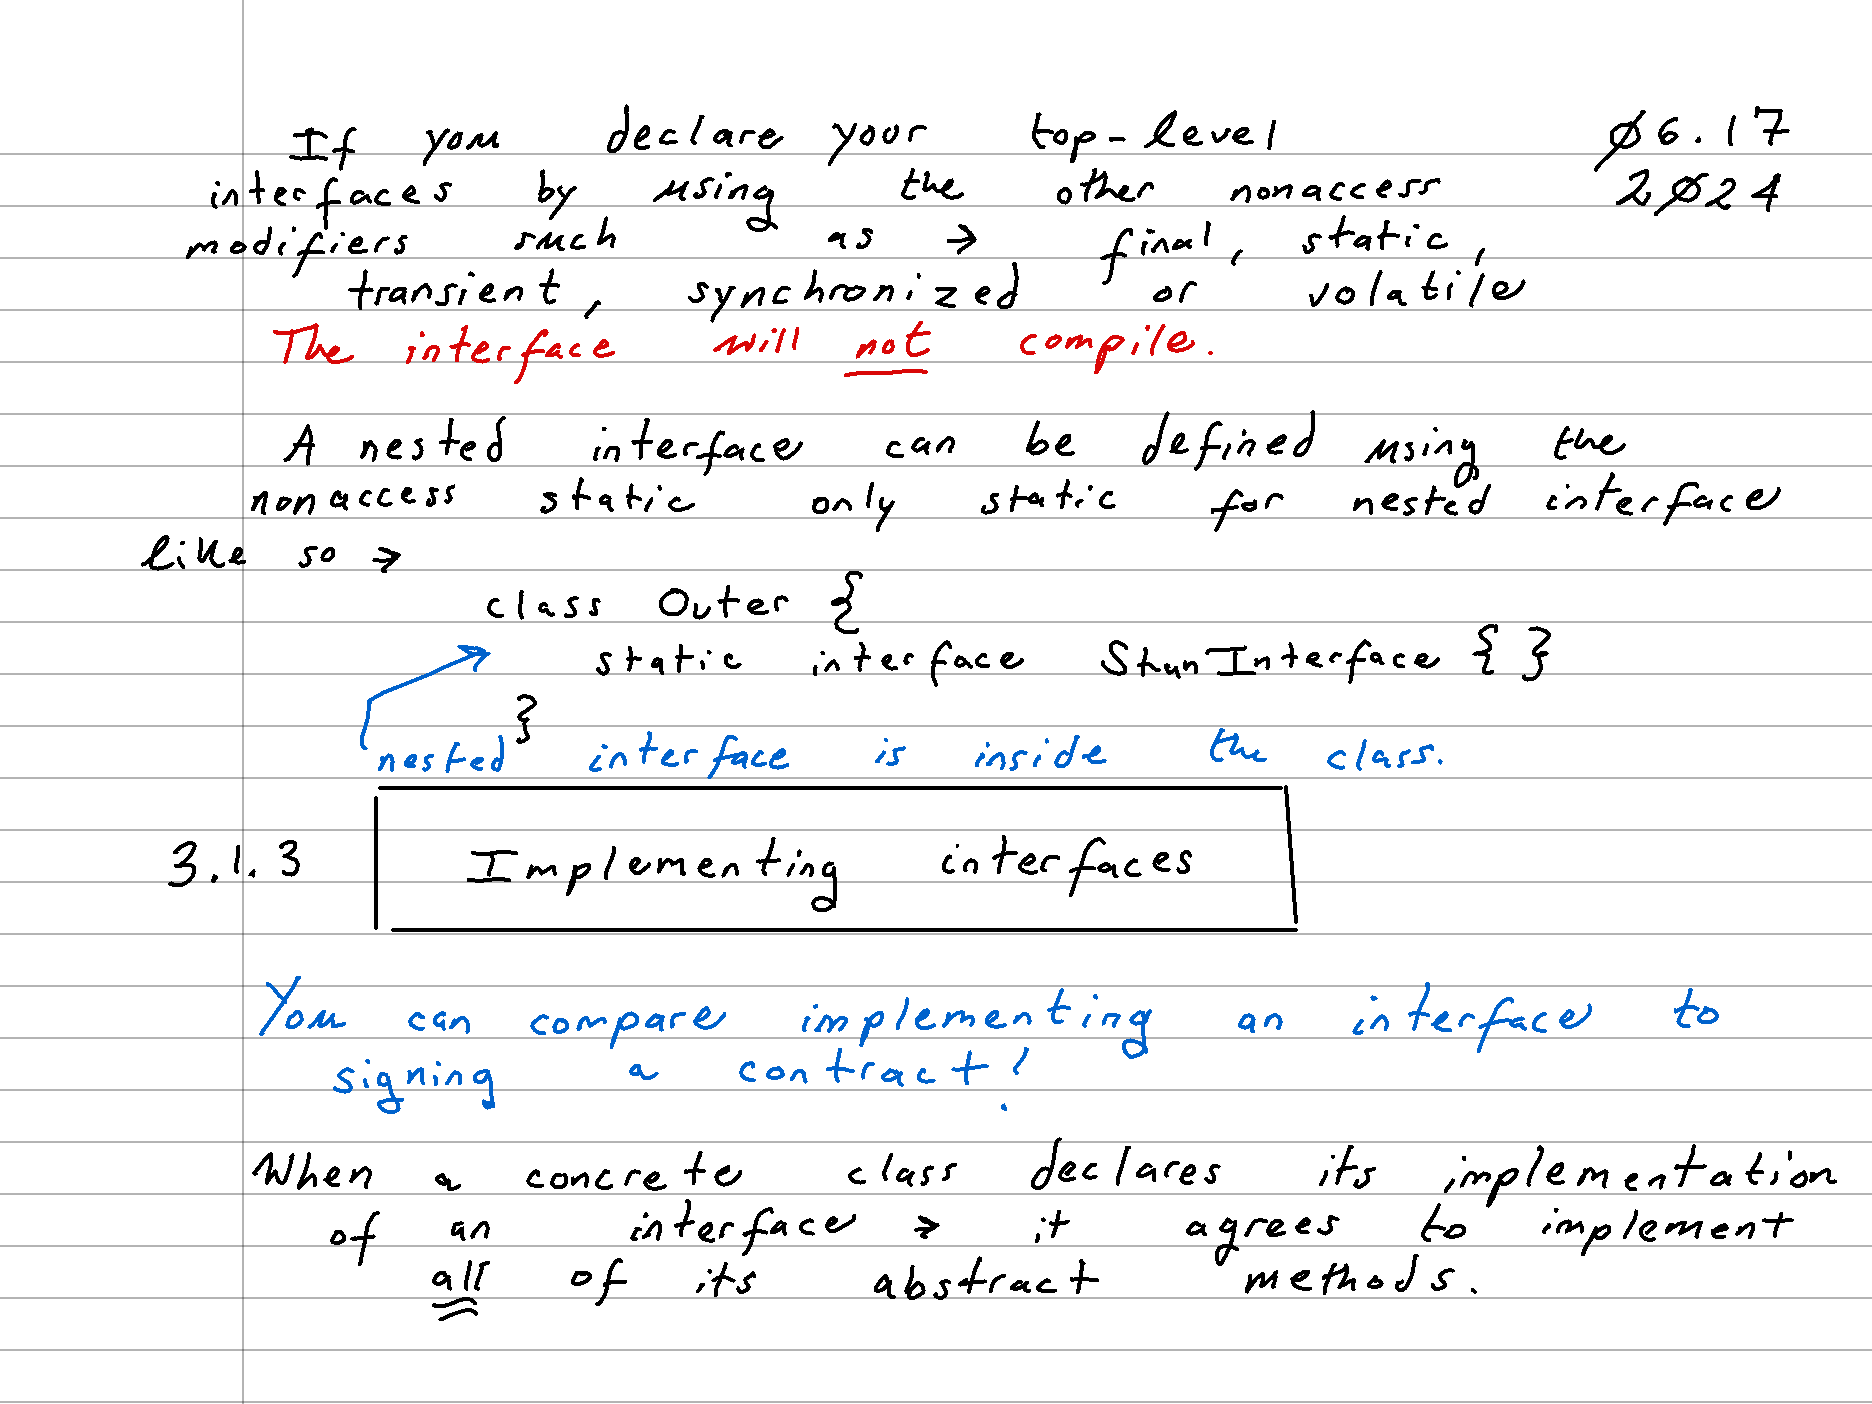 If you declare your top-level
Ø6.17
interfaces by using the other nonaccess
2Ø24
modifiers such as → final, static,
transient, synchronized or volatile
The interface will not compile.
A nested interface can be defined using the
nonaccess static only static for nested interface
like so →
class Outer {
static interface ShunInterface { }
}
nested interface is inside the class.
3.1.3 Implementing interfaces
You can compare implementing an interface to
signing a contract!
When a concrete class declares its implementation
of an interface → it agrees to implement
all of its abstract methods.